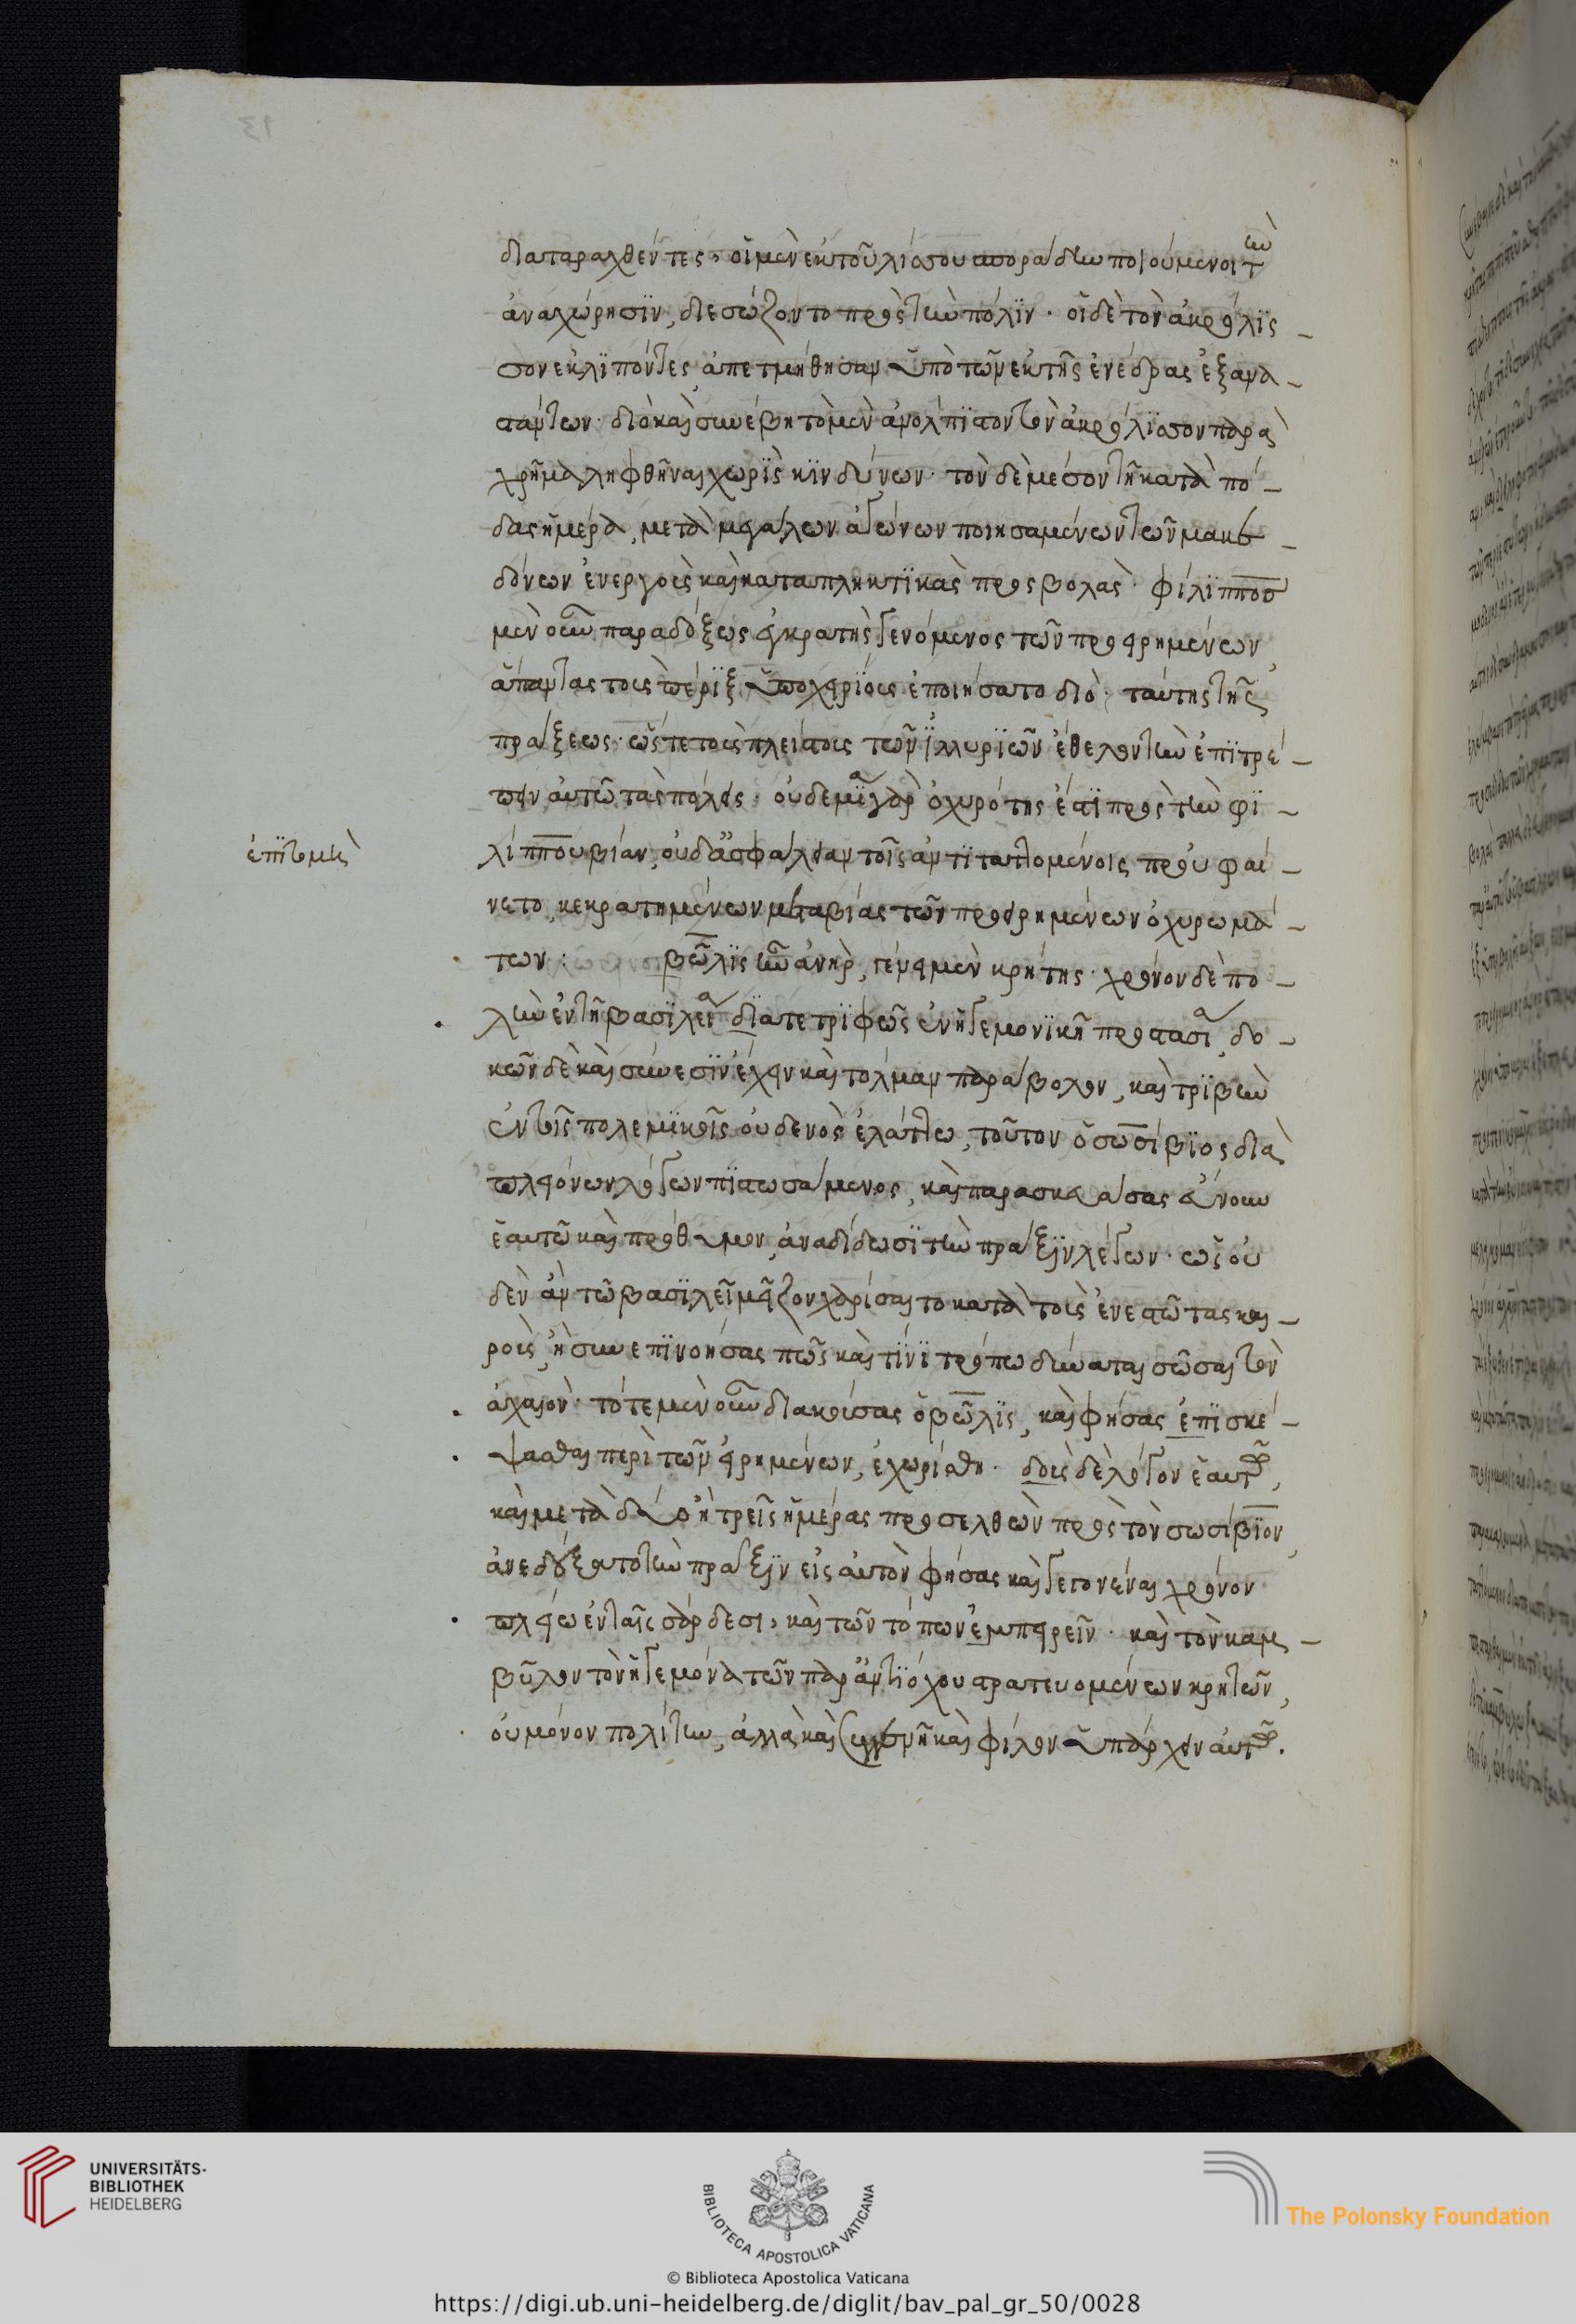 διαταραχθέντες, οἱ μὲν ἐκ τοῦ λίσσου σποράδην ποιούμενοι τὴν
ἀναχώρησϊν, διεσώζοντο πρὸς τὴν πόλϊν· οἱ δὲ τὸν ἀκρόλϊς
σον ἐκλϊπόντες ἀπετμήθησαν ὑπὸ τῶν ἐκ τῆς ἐνέδρας ἐξανα
στάντων· διὸ καὶ συνέβη τὸ μὲν ἀνόλπϊστον τὸν ἀκρόλϊσσον παρὰ
χρῆμα ληφθῆναι χωρὶς κϊνδύνων· τὸν δὲ μέσον τῆ κατὰ πό
δας ἡμέρα, μετὰ μεγάλων ἀγώνων ποιησαμένων τῶν μακε
δόνων ἐνεργοὺς καὶ καταπληκτϊκὰς προσβολάς· φίλϊππος
μὲν οὖν παραδόξως ἐγκρατὴς γενόμενος τῶν προειρημένων
ἅπαντας τοὺς πέρϊξ ὑποχειρίους ἐποιήσατο διὸ ταύτης τῆς
πράξεως· ὥστε τοὺς πλείστους τῶν ἰλλυρϊῶν ἐθελοντὴν ἐπϊτρέ
πειν αὐτῶ τὰς πόλεις· οὐδεμΐα γὰρ ὀχυρότης ἔτϊ πρὸς τὴν φϊ
λίππου βίαν, οὐδ' ἀσφάλεια τοῖς ἀντϊταττομένοις προὐφαί
νετο, κεκρατημένων μετὰ βίας τῶν προειρημένων ὀχυρωμά
των: βῶλϊς ἦν ἀνὴρ, γένει μὲν κρήτης· χρόνον δὲ πο
λὺν ἐν τῆ βασϊλεία διατετρϊφὼς ἐν ἡγεμονϊκῆ προστασία, δο
κῶν δὲ καὶ σύνεσϊν ἔχειν καὶ τόλμαν παράβολον, καὶ τρϊβὴν
ἐν τοῖς πολεμϊκοῖς οὐδενὸς ἐλάττω, τοῦτον ὁ σωσίβϊος διὰ
πλειόνων λόγων πϊστωσάμενος, καὶ παρασκευάσας εὔνουν
ἑαυτῶ καὶ πρόθυμον, ἀναδίδωσϊ τὴν πρᾶξϊν λέγων· ὡς οὐ
δὲν ἂν τῶ βασϊλεῖ μεῖζον χαρίσαιτο κατὰ τοὺς ἐνεστῶτας και
ροὺς, ἢ συνεπϊνοήσας πῶς καὶ τίνϊ τρόπω δύναται σῶσαι τὸν
ἀχαιόν· τότε μὲν οὖν διακούσας ὁ βῶλϊς, καὶ φήσας ἐπϊσκέ
ψασθαι περὶ τῶν εἰρημένων, ἐχωρίσθη· δοὺς δὲ λόγον ἑαυτῶ,
καὶ μετὰ δύο ἢ τρεῖς ἡμέρας προσελθὼν πρὸς τὸν σωσίβϊον
ἀνεδέξατο τὴν πρᾶξϊν εἰς αὑτὸν φήσας καὶ γεγονέναι χρόνον
πλείω ἐν ταῖς σάρδεσι, καὶ τῶν τόπων ἐμπειρεῖν· καὶ τὸν καμ
βύλον τὸν ἡγεμόνα τῶν παρ' ἀντϊόχου στρατευομένων κρητῶν,
οὐ μόνον πολίτην, ἀλλὰ καὶ συγγενῆ καὶ φίλον ὑπάρχειν αὐτῶ.
UNIVERSITÄTS-
BIBLIOTHEK
HEIDELBERG
BIBLIOTECA APOSTOLICA VATICANA
The Polonsky Foundation
© Biblioteca Apostolica Vaticana
https://digi.ub.uni-heidelberg.de/diglit/bav_pal_gr_50/0028